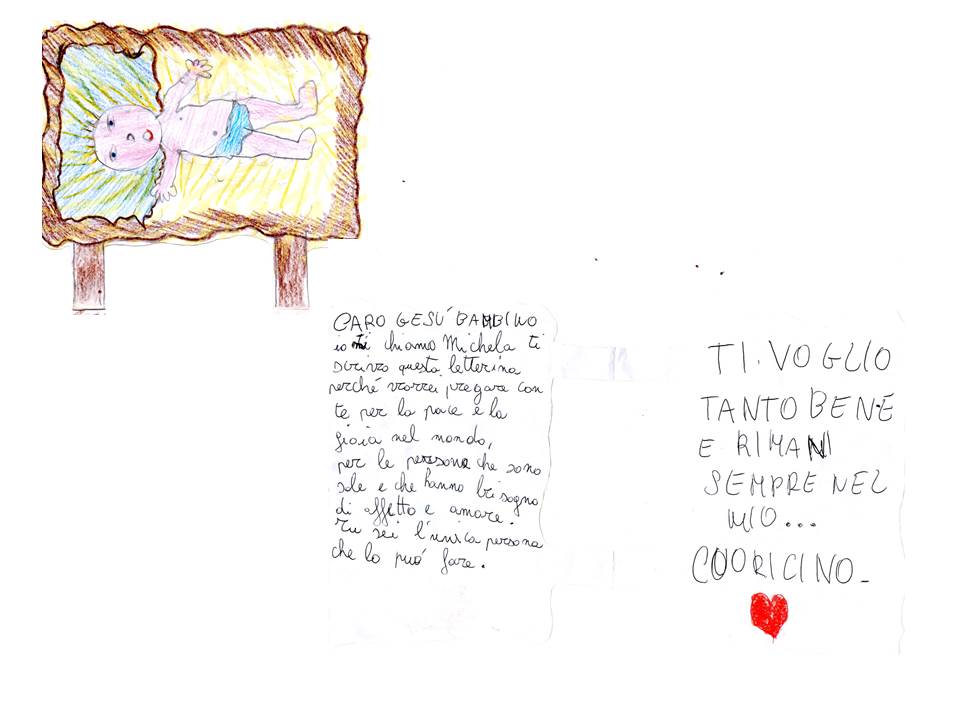 CARO GESÚ BAMBINO
io mi chiamo Michela ti
scrivo questa letterina
perché vorrei pregare con
te per la pace e la
gioia nel mondo,
per le persone che sono
sole e che hanno bisogno
di affetto e amore.
Tu sei l'unica persona
che lo puó fare.
TI VOGLIO
TANTO BENE
E RIMANI
SEMPRE NEL
MIO...
CUORICINO